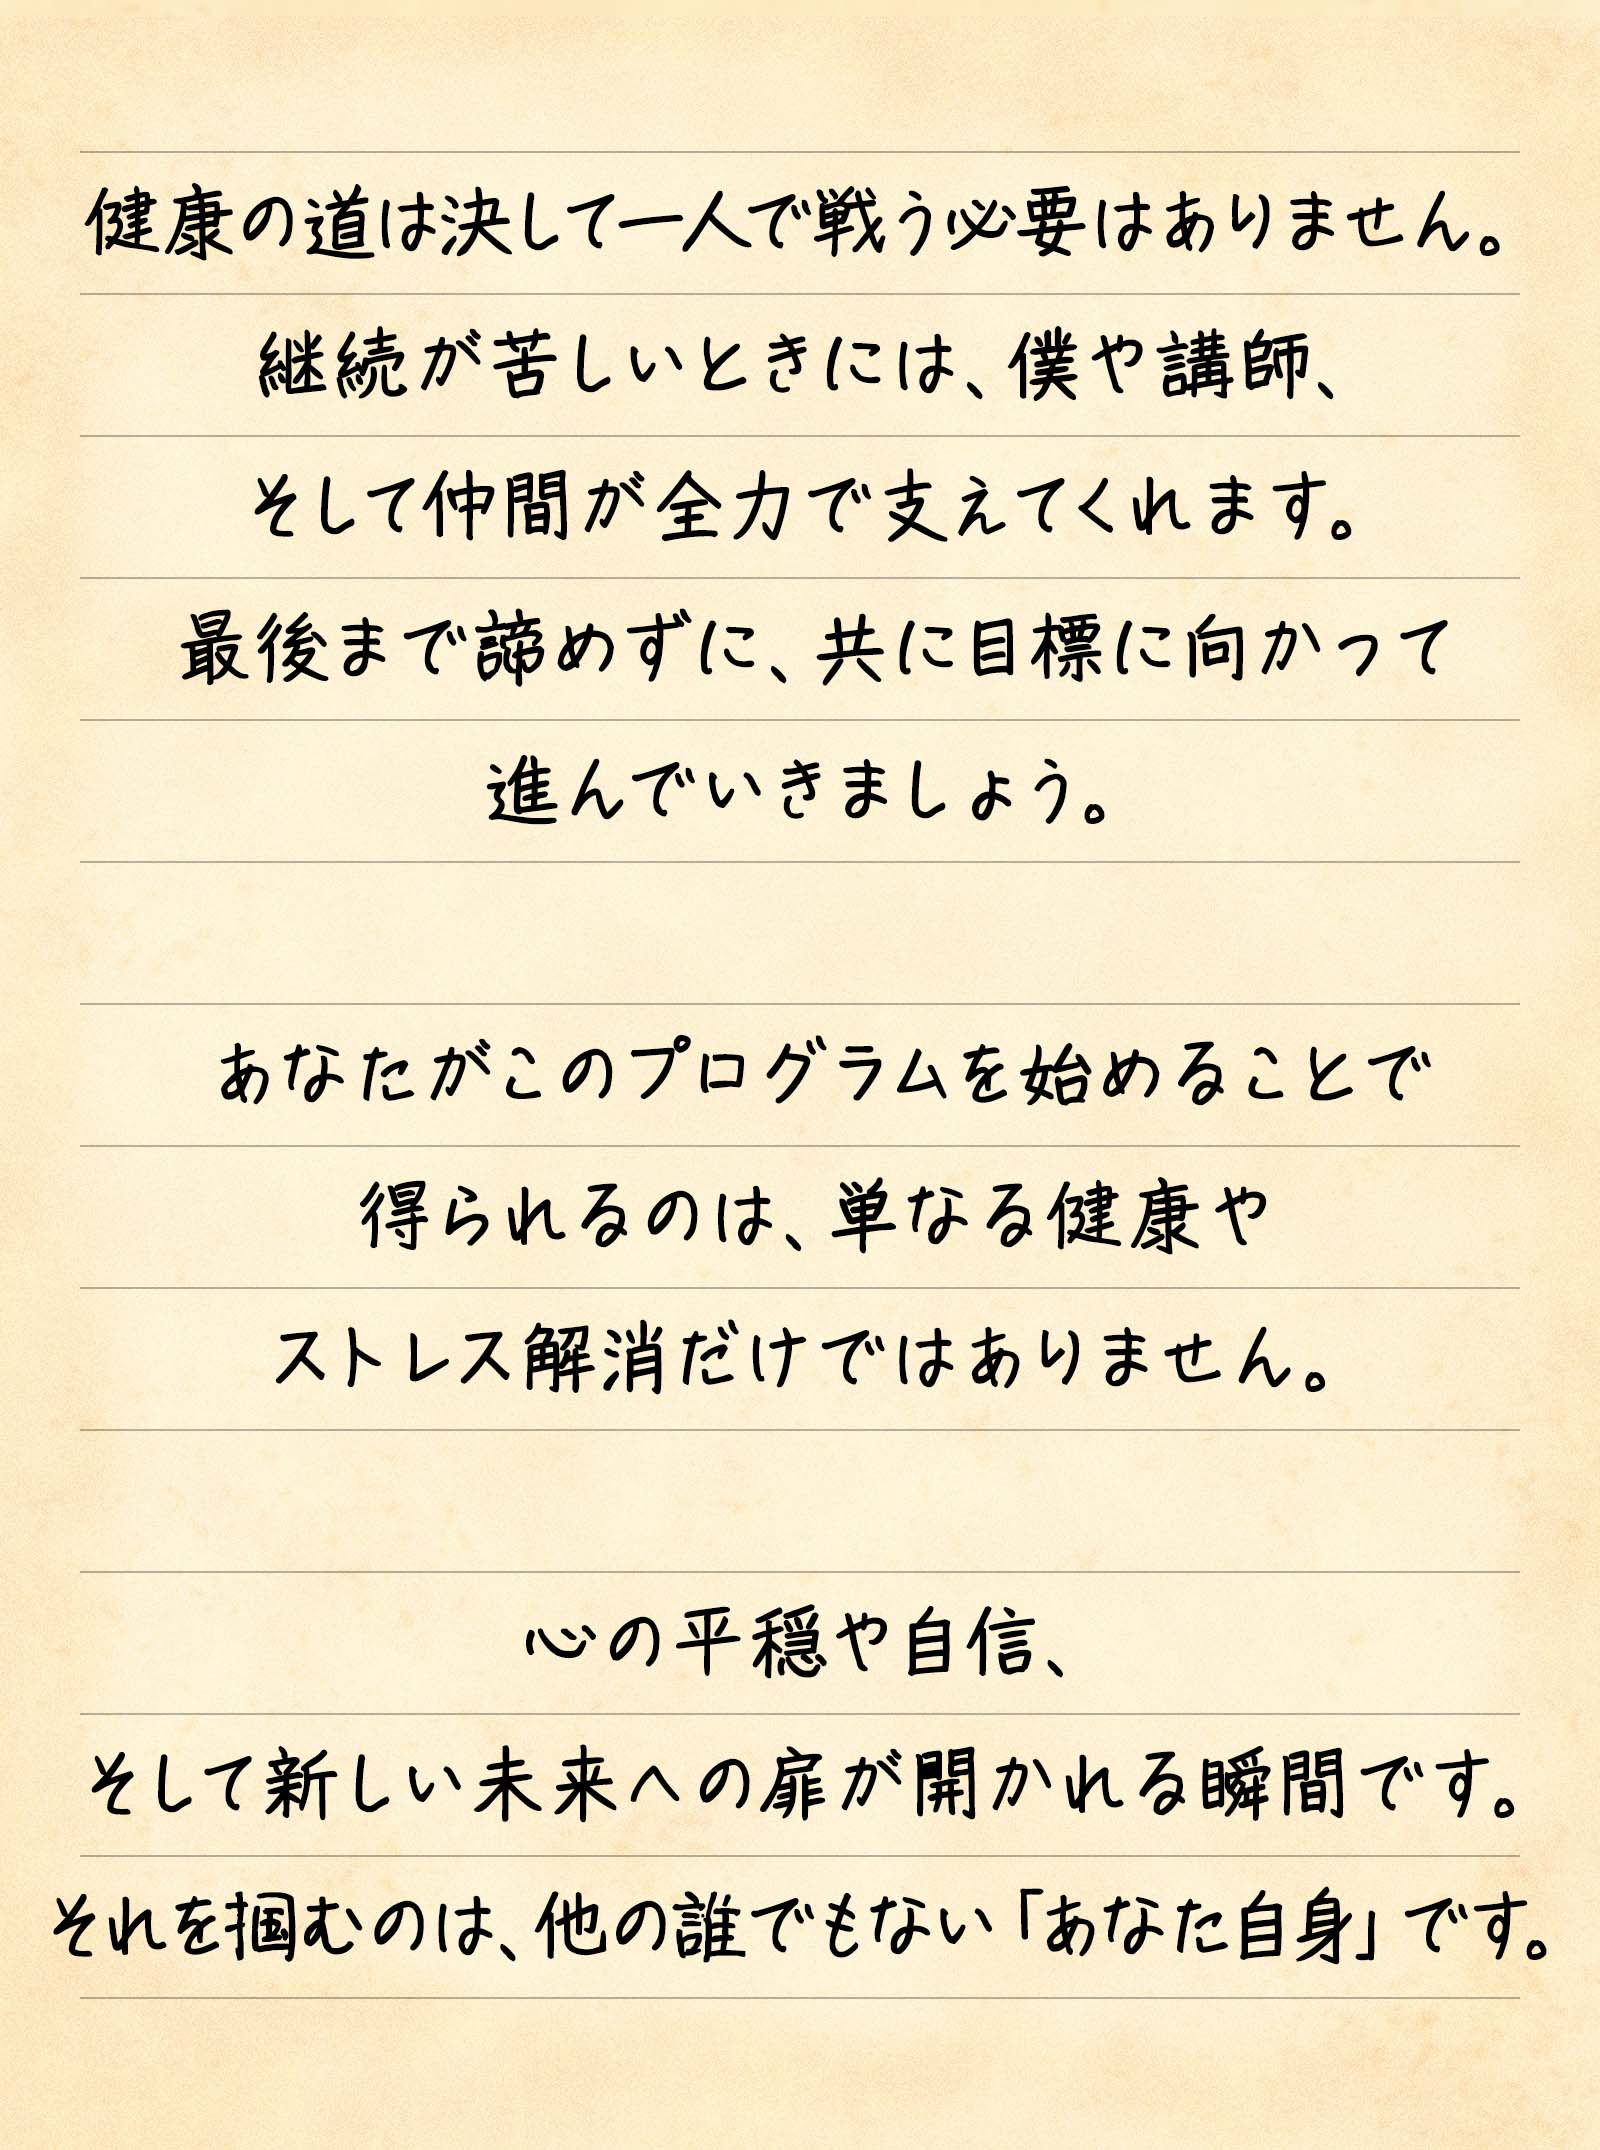 健康の道は決して一人で戦う必要はありません。
継続が苦しいときには、僕や講師、
そして仲間が全力で支えてくれます。
最後まで諦めずに、共に目標に向かって
進んでいきましょう。
あなたがこのプログラムを始めることで
得られるのは、単なる健康や
ストレス解消だけではありません。
心の平穏や自信、
そして新しい未来への扉が開かれる瞬間です。
それを掴むのは、他の誰でもない「あなた自身」です。